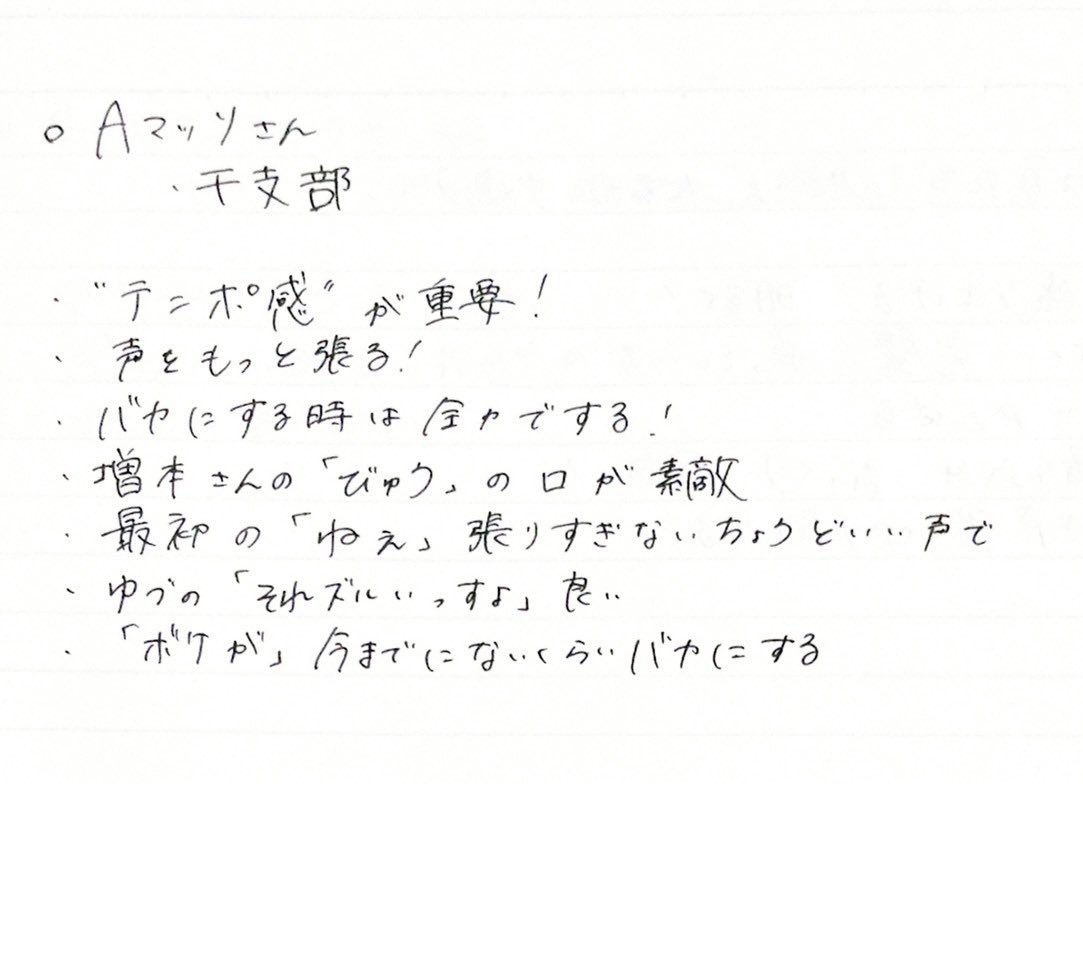 ○ Aマッソさん
・干支部
・"テンポ感"が重要！
・声をもっと張る！
・バカにする時は全力でする！
・増本さんの「びゅう」の口が素敵
・最初の「ねぇ」張りすぎないちょうどいい声で
・ゆづの「それズルいっすよ」良い
・「ボケが」今までにないくらいバカにする